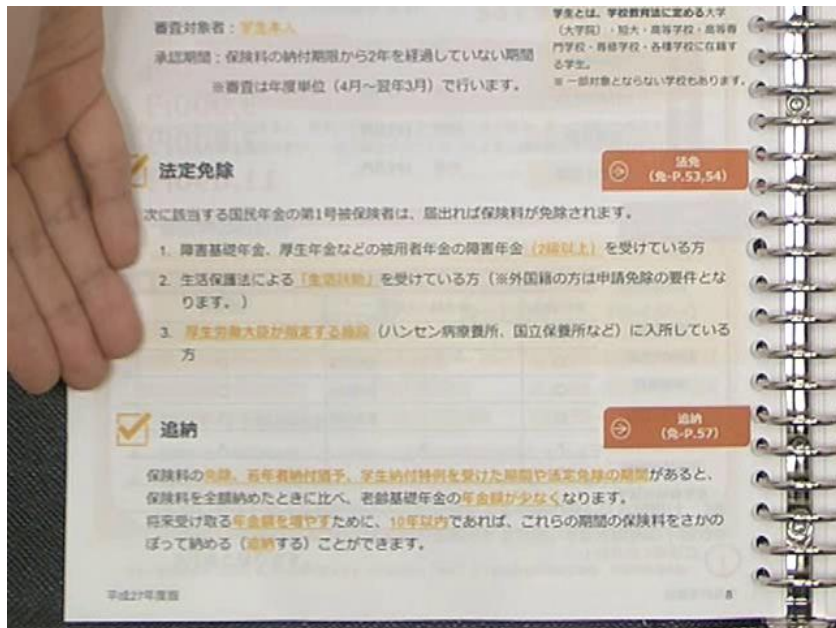 審査対象者：学生本人
承認期間：保険料の納付期限から2年を経過していない期間
※審査は年度単位（4月～翌年3月）で行います。
学生とは、学校教育法に定める大学
（大学院）・短大・高等学校・高等専
門学校・専修学校・各種学校に在籍す
る学生。
※一部対象とならない学校もあります。
法定免除
法免
（免-P.53,54）
次に該当する国民年金の第1号被保険者は、届出れば保険料が免除されます。
1. 障害基礎年金、厚生年金などの被用者年金の障害年金（2級以上）を受けている方
2. 生活保護法による「生活扶助」を受けている方（※外国籍の方は申請免除の要件とな
ります。）
3. 厚生労働大臣が指定する施設（ハンセン病療養所、国立保養所など）に入所している
方
追納
追納
（免-P.57）
保険料の免除、若年者納付猶予、学生納付特例を受けた期間や法定免除の期間があると、
保険料を全額納めたときに比べ、老齢基礎年金の年金額が少なくなります。
将来受け取る年金額を増やすために、10年以内であれば、これらの期間の保険料をさかの
ぼって納める（追納する）ことができます。
平成27年度版
8